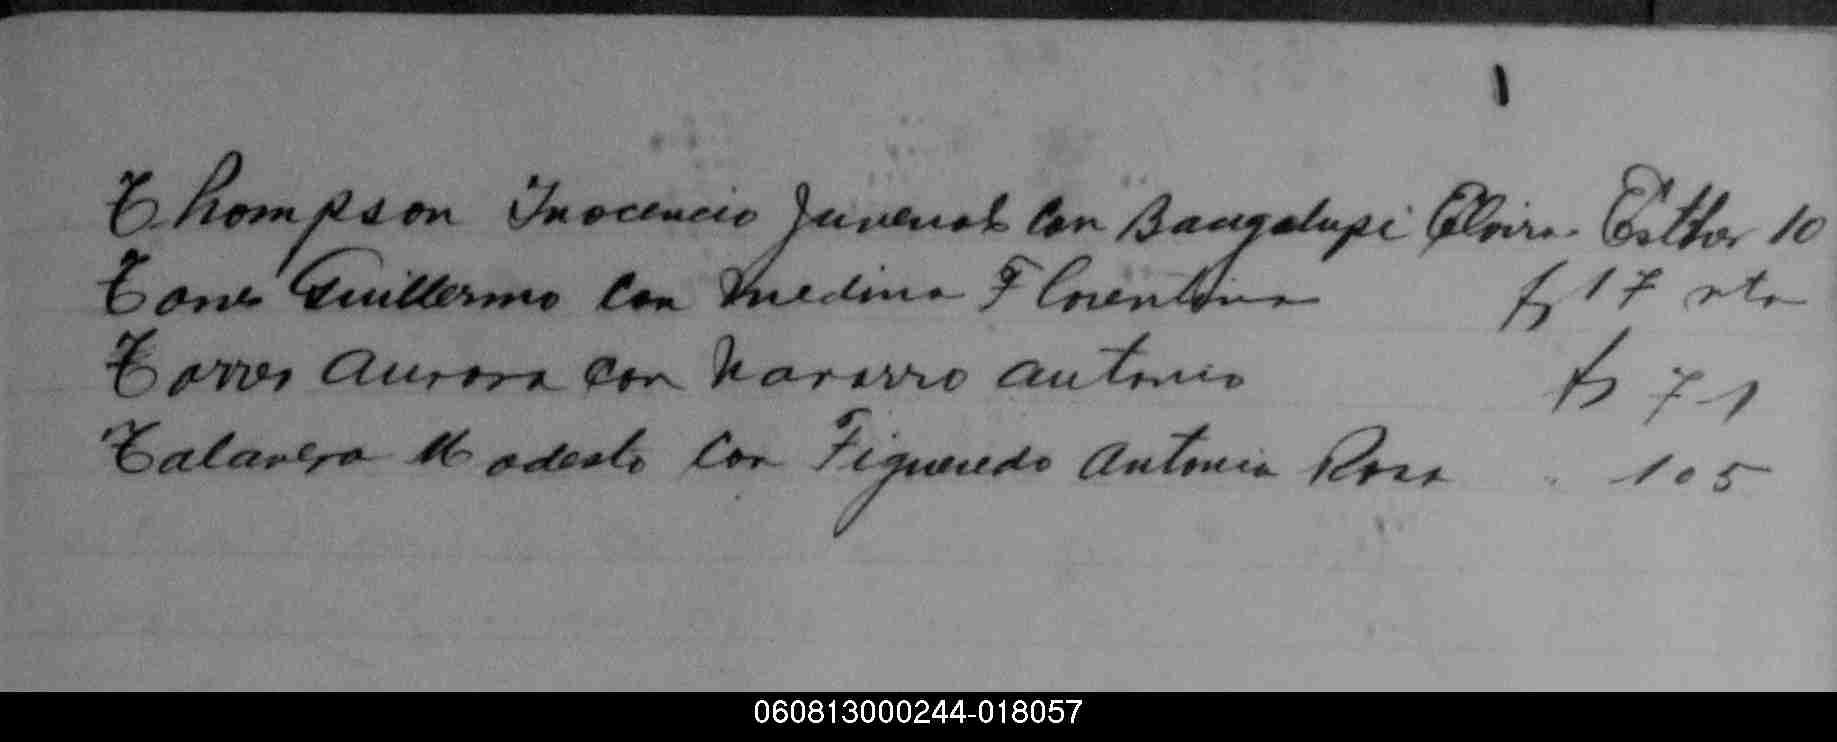 Thompson Inocencio Juvenal con Baugalupi Elvira Esther 10
Torres Guillermo con Medina Florentina fs 17 vta
Torres Aurora con Navarro Antonio fs 71
Talavera Modesto con Figueredo Antonia Rosa 105
060813000244-018057